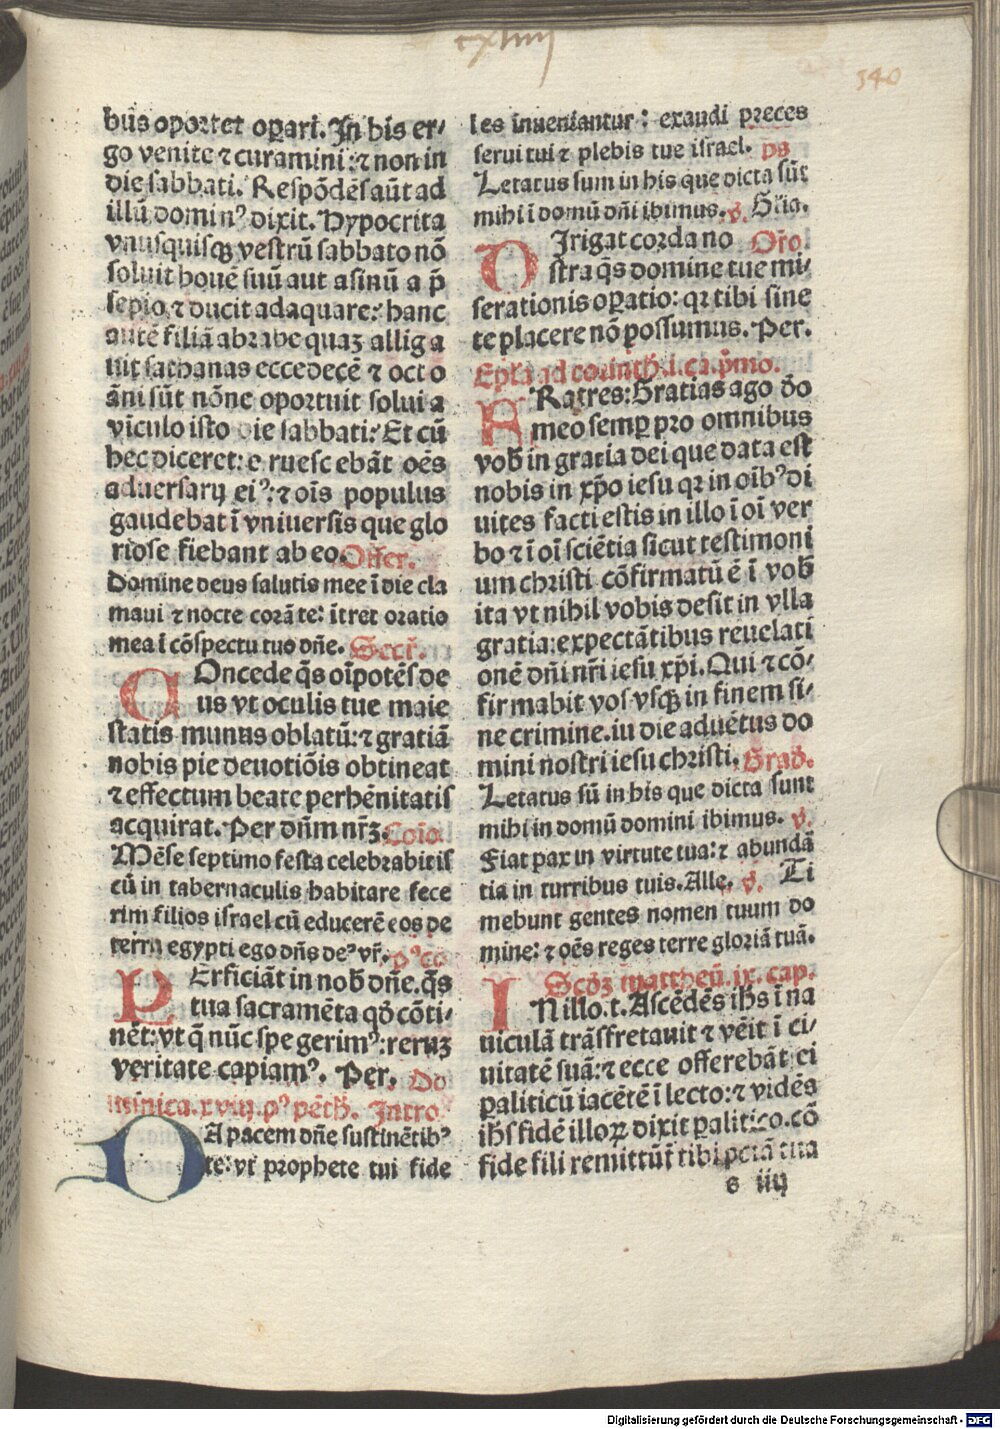 cxliiij
340
bus oportet oꝑari. In his er⸗
go venite ⁊ curamini: ⁊ non in
die sabbati. Respōdēs aūt ad
illū domin⁹ dixit. Hypocrita
vnusquisqꝫ vestrū sabbato nō
soluit bouē suū aut asinū a p̄
sepio, ⁊ ducit adaquare: hanc
autē filiā abrahe quaꝫ alliga
uit sathanas ecce decē ⁊ octo
āni sūt nōne oportuit solui a
vīculo isto die sabbati? Et cū
hec diceret: eruescebāt oēs
aduersarij ei⁹: ⁊ oīs populus
gaudebat ī vniuersis que glo
riose fiebant ab eo. Offer.
Domine deus salutis mee ī die cla
maui ⁊ nocte corā te: ītret oratio
mea ī cōspectu tuo dn̄e. Secr̄.
COncede q̄s oīpotēs de
us vt oculis tue maie
statis munus oblatū: ⁊ gratiā
nobis pie deuotiōis obtineat
⁊ effectum beate perhēnitatis
acquirat. Per dn̄m nr̄ꝫ. Coīo.
Mēse septimo festa celebrabitis
cū in tabernaculis habitare fece
rim filios israel cū educerē eos de
terra egypti ego dn̄s de⁹ vr̄. p⁹ co
PErficiāt in nob̄ dn̄e. q̄s
tua sacramēta qd̄ cōti⸗
nēt: vt q̄ nūc spe gerim⁹: reruꝫ
veritate capiam⁹. Per. Do
minica. xviij. p⁹ pēth̄. Intro.
DA pacem dn̄e sustinētib⁹
te: vt prophete tui fide
les inueniantur: exaudi preces
serui tui ⁊ plebis tue israel. ps
Letatus sum in his que dicta sūt
mihi ī domū dn̄i ibimus. v̄. Gl̄ia.
DIrigat corda no Or̄o.
stra q̄s domine tue mi⸗
serationis oꝑatio: qꝛ tibi sine
te placere nō possumus. Per.
Epl̄a ad corinth̄. i. ca. p̄mo.
FRatres: Gratias ago dō
meo semꝑ pro omnibus
vob̄ in gratia dei que data est
nobis in xp̄o iesu qꝛ in oīb⁹ di
uites facti estis in illo ī oī ver
bo ⁊ ī oī sciētia sicut testimoni
um christi cōfirmatū ē ī vob̄
ita vt nihil vobis desit in vlla
gratia: expectātibus reuelati
onē dn̄i nr̄i iesu xp̄i. Qui ⁊ cō⸗
firmabit vos vsqꝫ in finem si⸗
ne crimine. in die aduētus do
mini nostri iesu christi. Grad̄.
Letatus sū in his que dicta sunt
mihi in domū domini ibimus. v̄.
Fiat pax in virtute tua: ⁊ abundā
tia in turribus tuis. Alle. v̄. Ti
mebunt gentes nomen tuum do
mine: ⁊ oēs reges terre gloriā tuā.
Scd̄ꝫ mattheū. ix. cap.
IN illo. t. Ascēdēs ih̄s ī na
uiculā trāsfretauit ⁊ vēit ī ci⸗
uitatē suā: ⁊ ecce offerebāt ei
ꝑaliticū iacētē ī lecto: ⁊ vidēs
ih̄s fidē illoꝝ dixit ꝑalitico. cō
fide fili remittūt̄ tibi pctā tua
s iiij
Digitalisierung gefördert durch die Deutsche Forschungsgemeinschaft - DFG